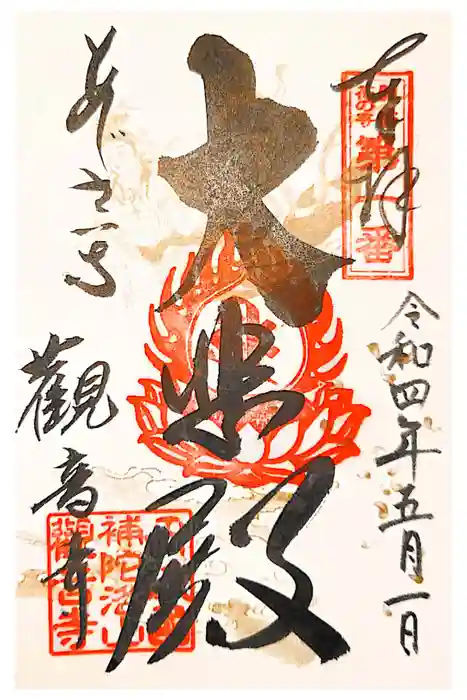 奉拝
花の寺
第一番
令和四年五月一日
大悲殿
觀音寺
補陀洛山
觀音寺